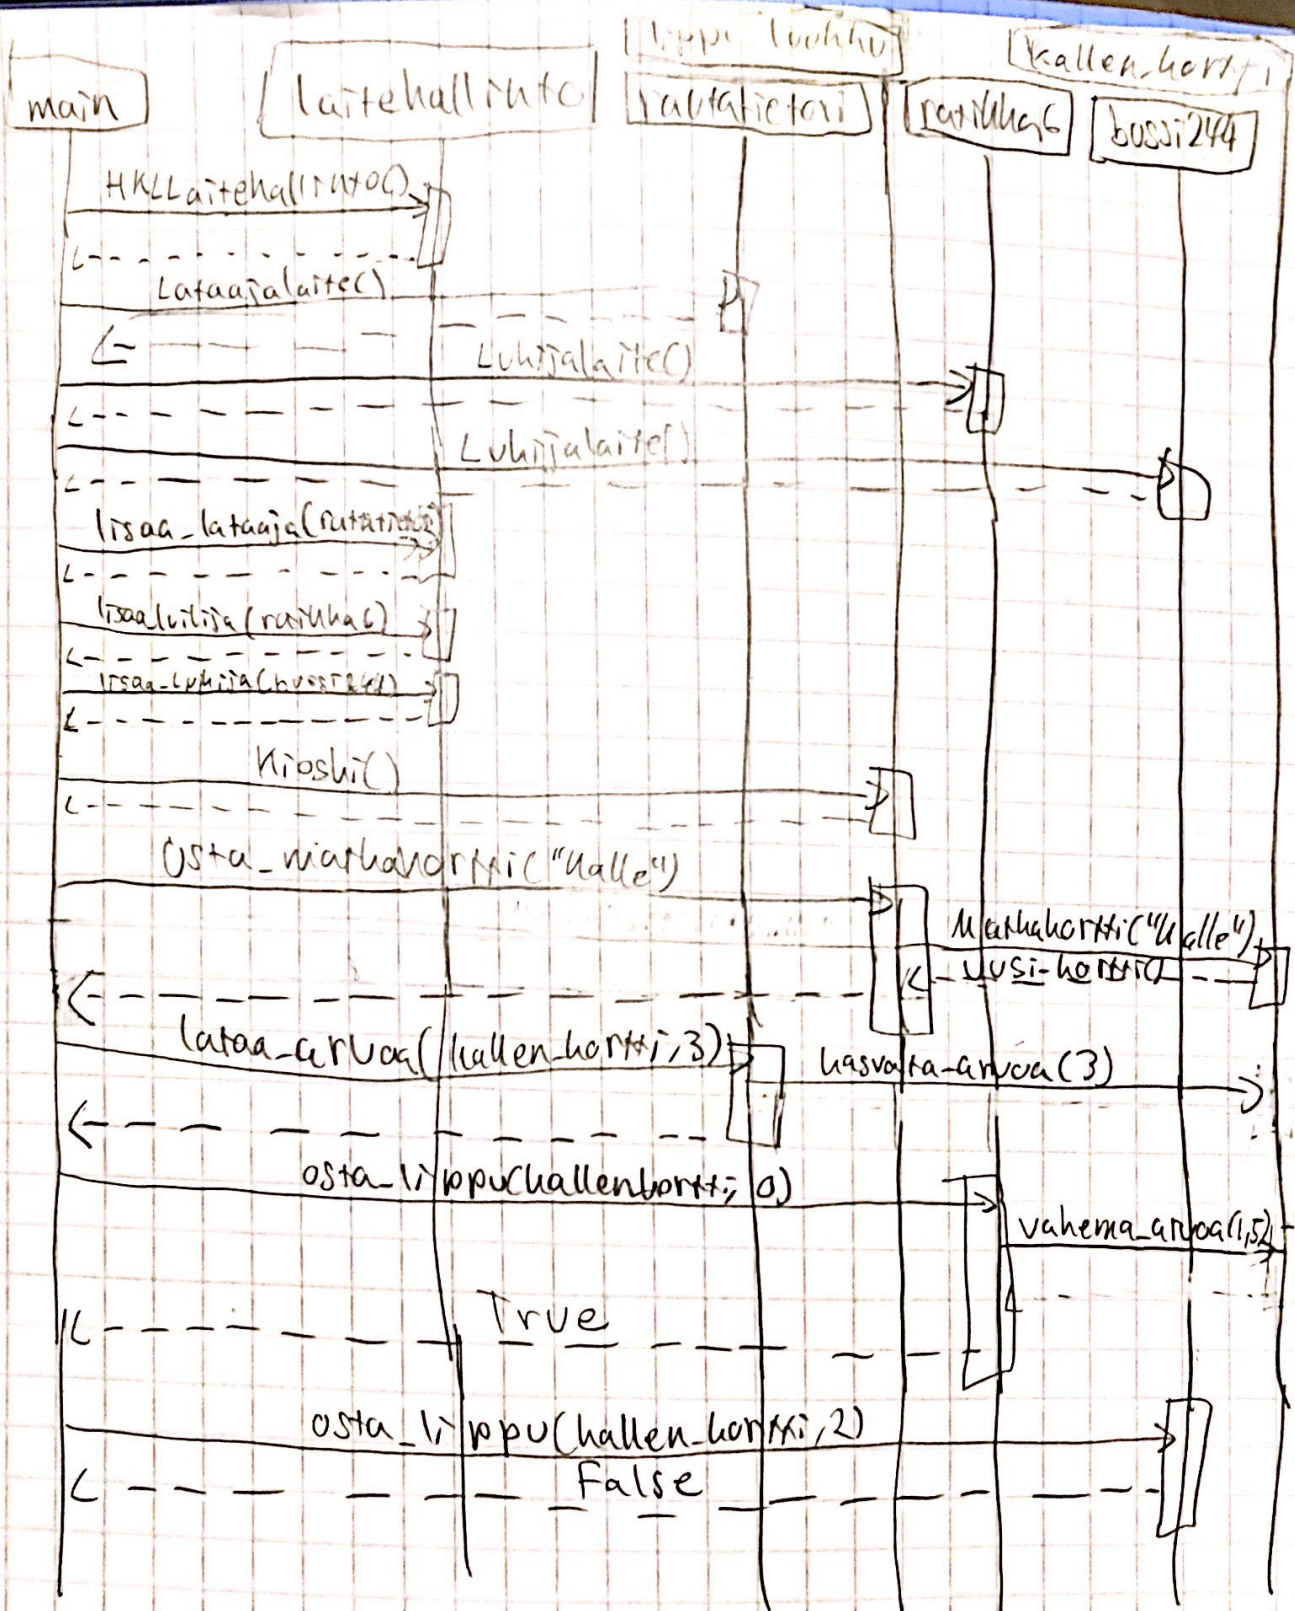 lippu luukku
kallen_kortti
main
laitehallinto
rautatietori
ratikka6
bussi244
HKLLaitehallinto()
Lataajalaite()
Lukijalaite()
Lukijalaite()
lisaa_lataaja(rautatietori)
lisaa lukija(ratikka6)
lisaa_lukija(bussi244)
Kioski()
Osta_matkakortti("Kalle")
Matkakortti("Kalle")
uusi_kortti()
lataa_arvoa(kallen_kortti,3)
kasvata_arvoa(3)
osta_lippu(kallenkortti, 0)
vahenna_arvoa(1,5)
True
osta_lippu(kallen_kortti,2)
False